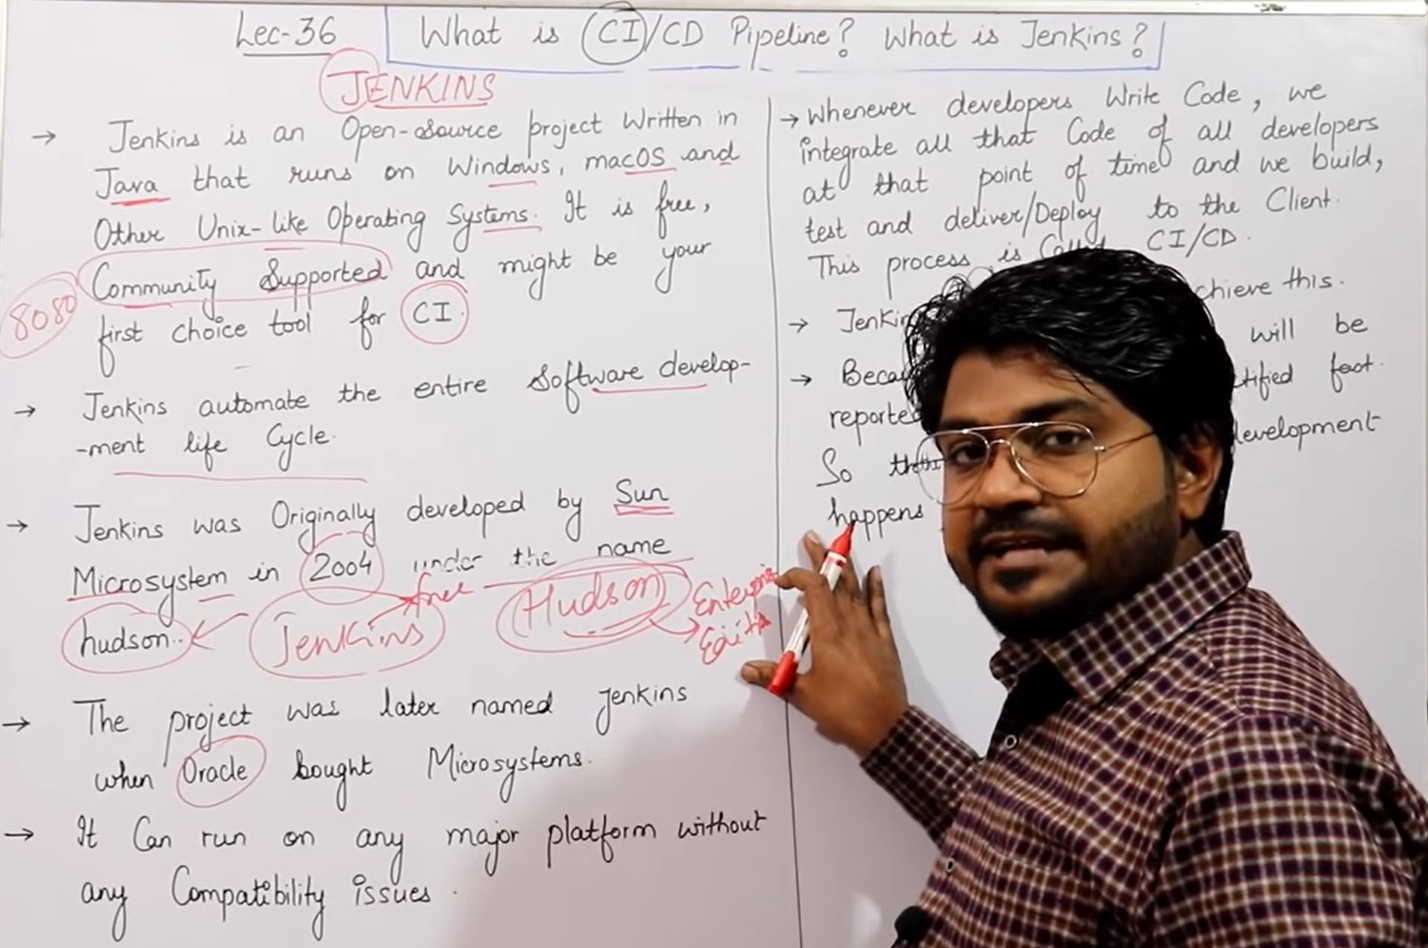 Lec-36
What is CI/CD Pipeline? What is Jenkins?
JENKINS
→ Jenkins is an Open-source project Written in
Java that runs on Windows, macOS and
Other Unix-like Operating Systems. It is free,
Community Supported and might be your
first choice tool for CI.
8080
→ Jenkins automate the entire Software develop-
-ment life Cycle.
→ Jenkins was Originally developed by Sun
Microsystem in 2004 under the name
hudson..
Jenkins
free
Hudson
→ The project was later named Jenkins
when Oracle bought Microsystems.
→ It Can run on any major platform without
any Compatibility issues.
→ Whenever developers Write Code, we
integrate all that Code of all developers
at that point of time and we build,
test and deliver/Deploy to the Client.
This process is Called CI/CD.
→ chieve this.
→ will be
reported
So
happens